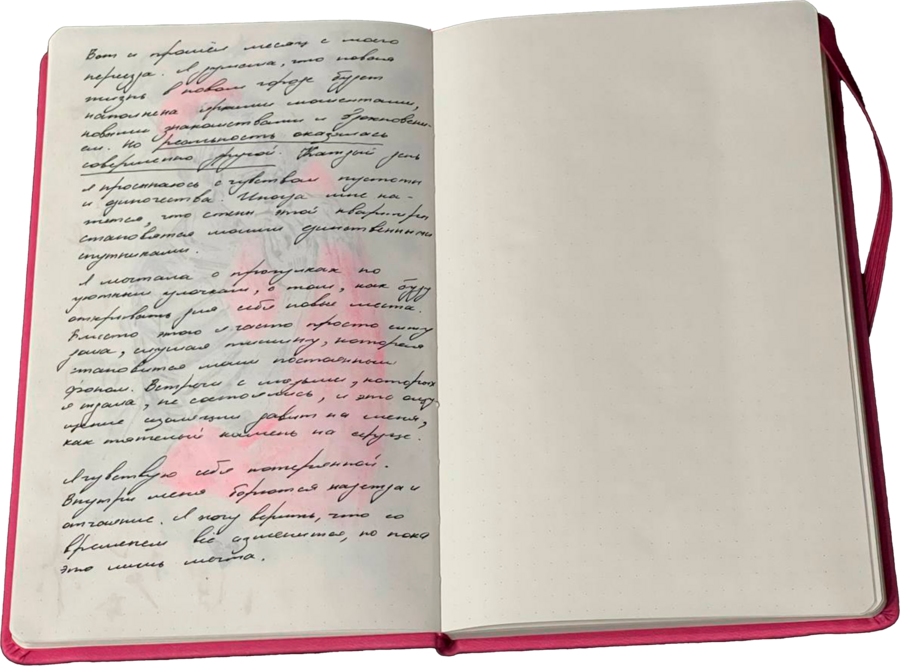 Вот и прошёл месяц с моего
переезда. Я думала, что новая
жизнь в новом городе будет
наполнена яркими моментами,
новыми знакомствами и вдохновени-
ем. Но реальность оказалась
совершенно другой. Каждый день
я просыпаюсь с чувством пустоты
и одиночества. Иногда мне ка-
жется, что стены этой квартиры
становятся моими единственными
спутниками.
Я мечтала о прогулках по
уютным улочкам, о том, как буду
открывать для себя новые места.
Вместо этого я часто просто сижу
дома, слушая тишину, которая
становится моим постоянным
фоном. Встречи с людьми, которых
я ждала, не состоялись, и это ощу-
щение изоляции давит на меня,
как тяжёлый камень на сердце.
Я чувствую себя потерянной.
Внутри меня борются надежда и
отчаяние. Я хочу верить, что со
временем всё изменится, но пока
это лишь мечта.